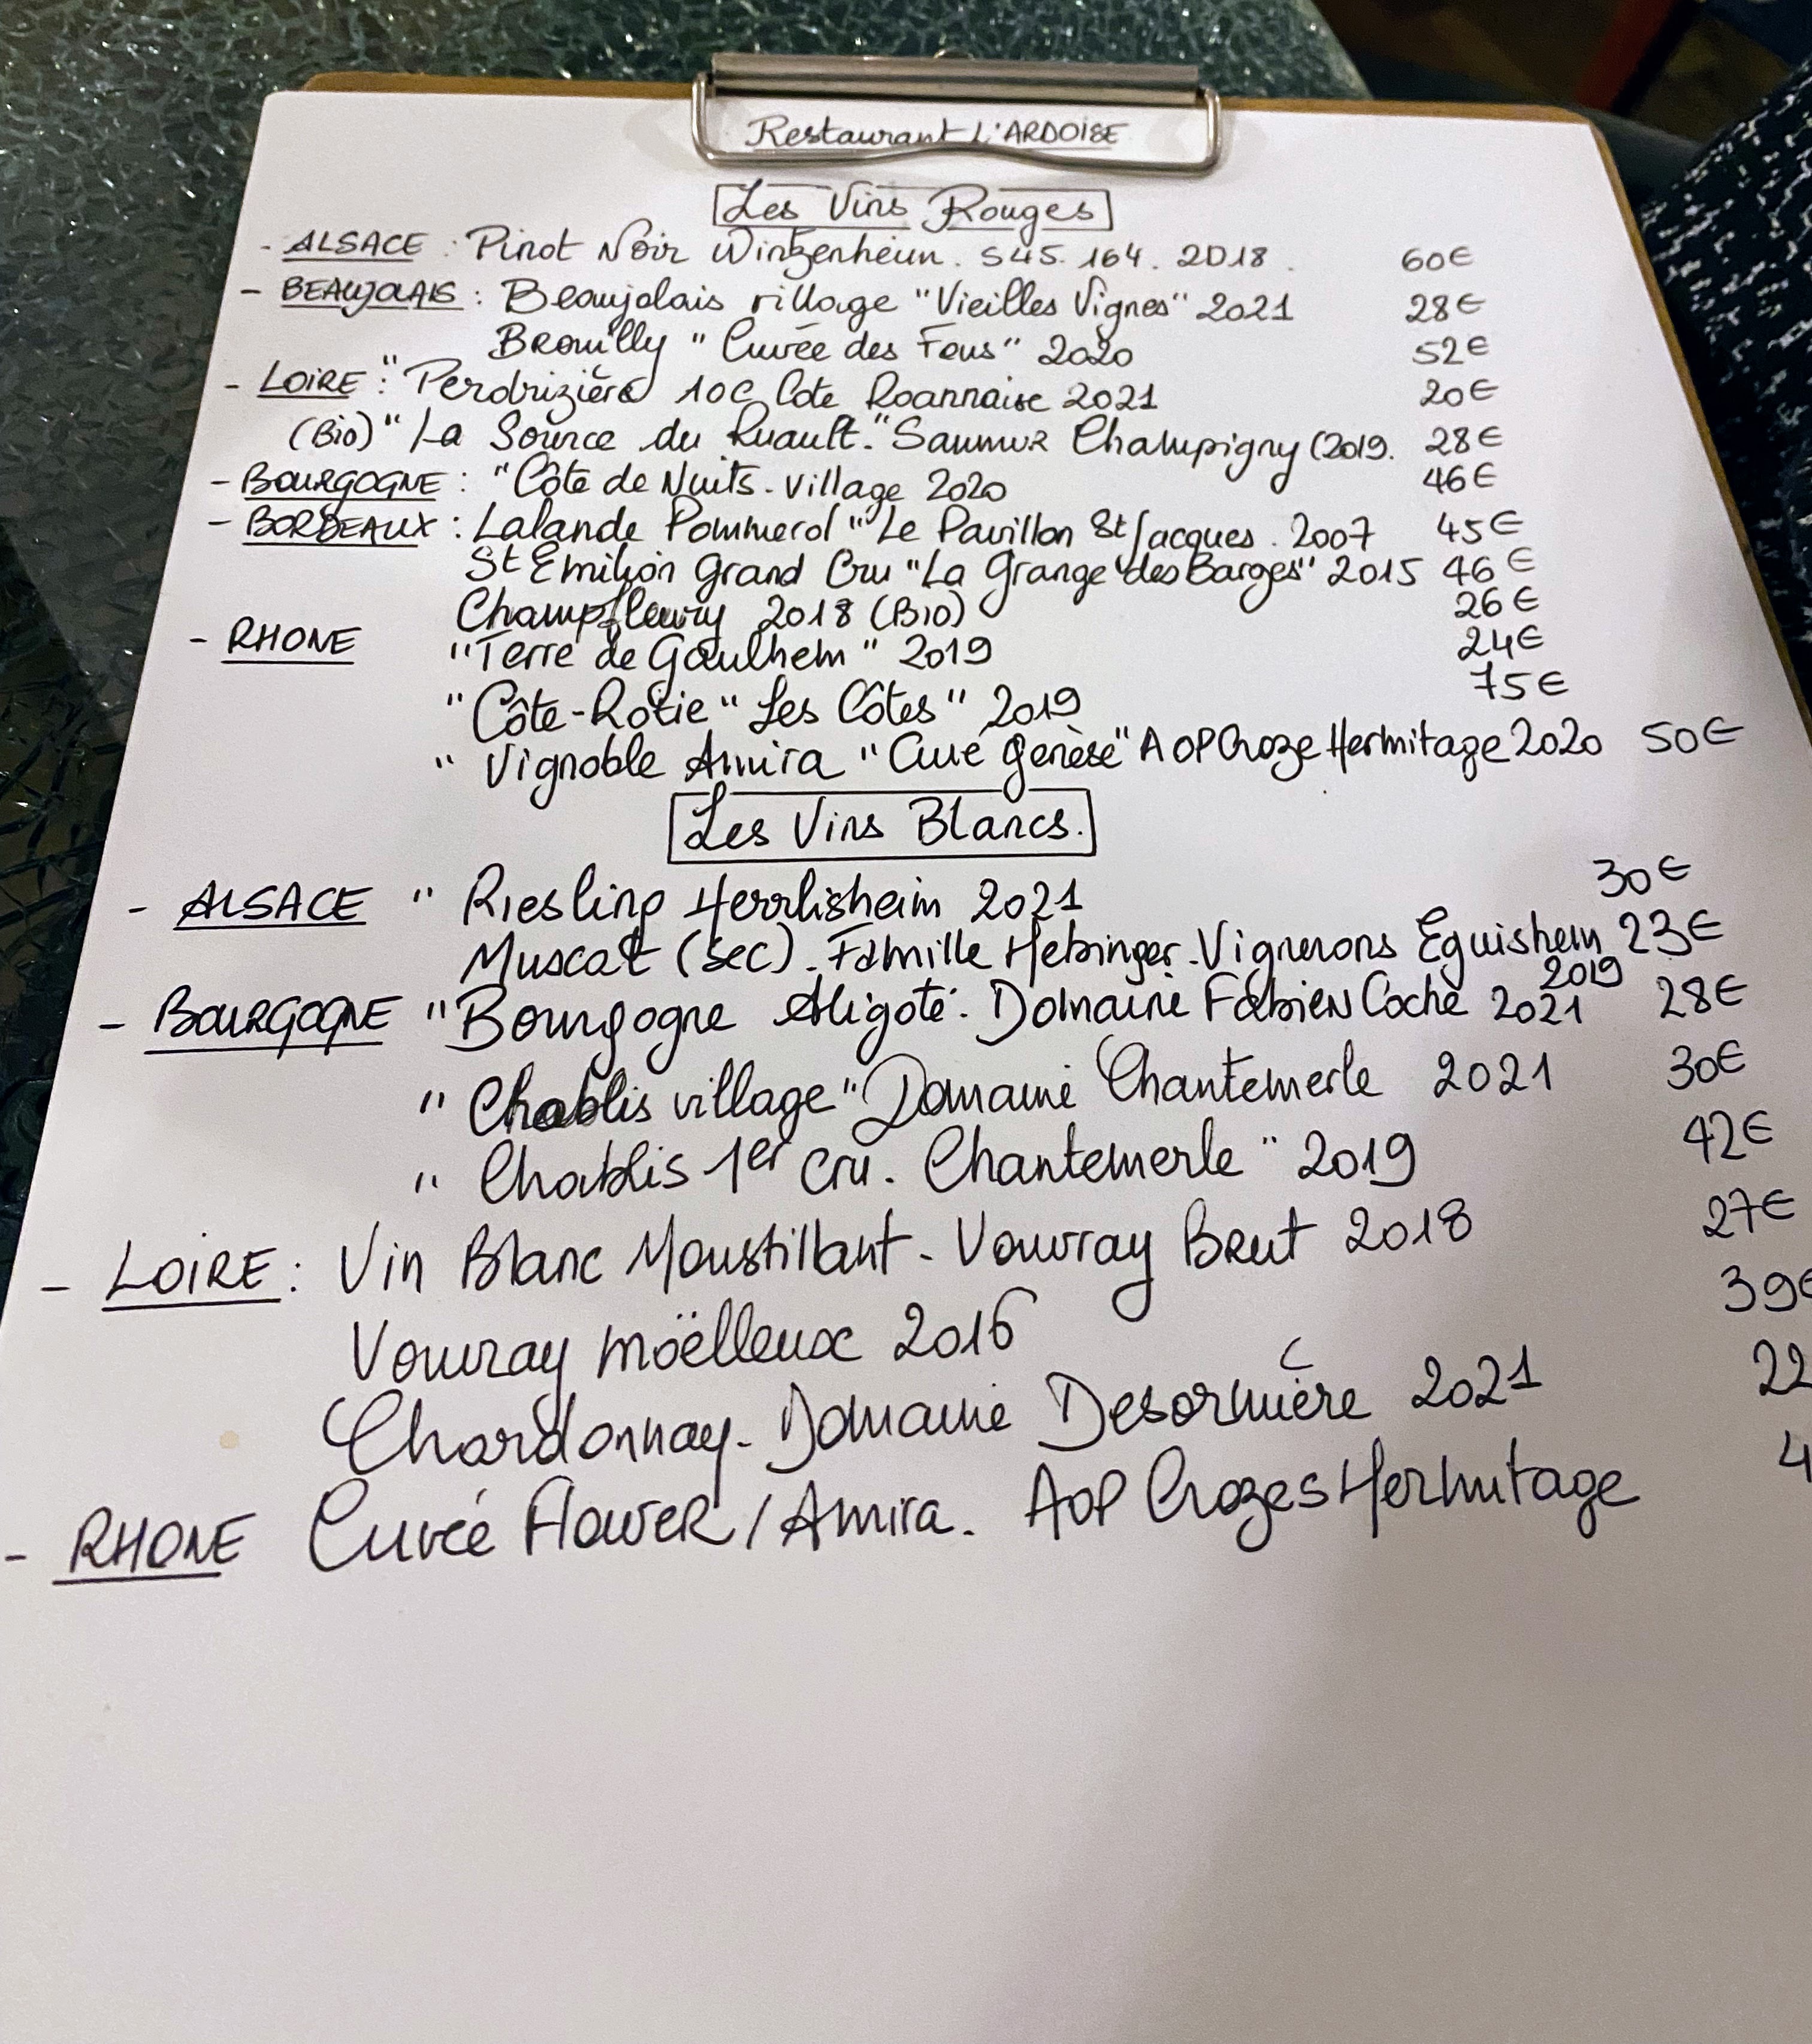 Restaurant L'ARDOISE
Les Vins Rouges
- ALSACE : Pinot Noir Wintzenheim. S45. 164. 2018. 60€
- BEAUJOLAIS : Beaujolais village "Vieilles Vignes" 2021 28€
Brouilly "Cuvée des Fous" 2020 52€
- LOIRE : "Perdrizière AOC Cote Roannaise 2021 20€
(Bio) "La Source du Ruault." Saumur Champigny (2019. 28€
- BOURGOGNE : "Côte de Nuits-Village 2020 46€
- BORDEAUX : Lalande Pommerol "Le Pavillon St Jacques. 2007 45€
St Emilion Grand Cru "La Grange des Barges" 2015 46€
Champfleury 2018 (Bio) 26€
- RHONE "Terre de Gaulhem" 2019 24€
"Côte-Rotie "Les Côtes" 2019 75€
" Vignoble Amira "Cuvé Genèse" AOP Croze Hermitage 2020 50€
Les Vins Blancs.
- ALSACE " Riesling Herrlisheim 2021 30€
Muscat (sec). Famille Hebinger. Vignerons Eguisheim 23€
2019
- BOURGOGNE "Bourgogne Aligoté. Domaine Fabien Coche 2021 28€
" Chablis village" Domaine Chantemerle 2021 30€
" Chablis 1er Cru. Chantemerle" 2019 42€
- LOIRE : Vin Blanc Moustillant - Vouvray Brut 2018 27€
Vouvray moëlleux 2016 39€
Chardonnay - Domaine Desormière 2021 22
- RHONE Cuvée Flower / Amira. AOP Crozes Hermitage 4